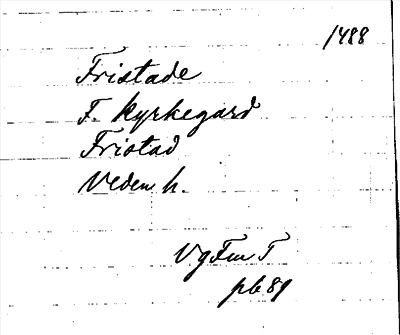 1488
Fristade
F. Kyrkegard
Fristad
Veden h.
VgFmT
pb 89